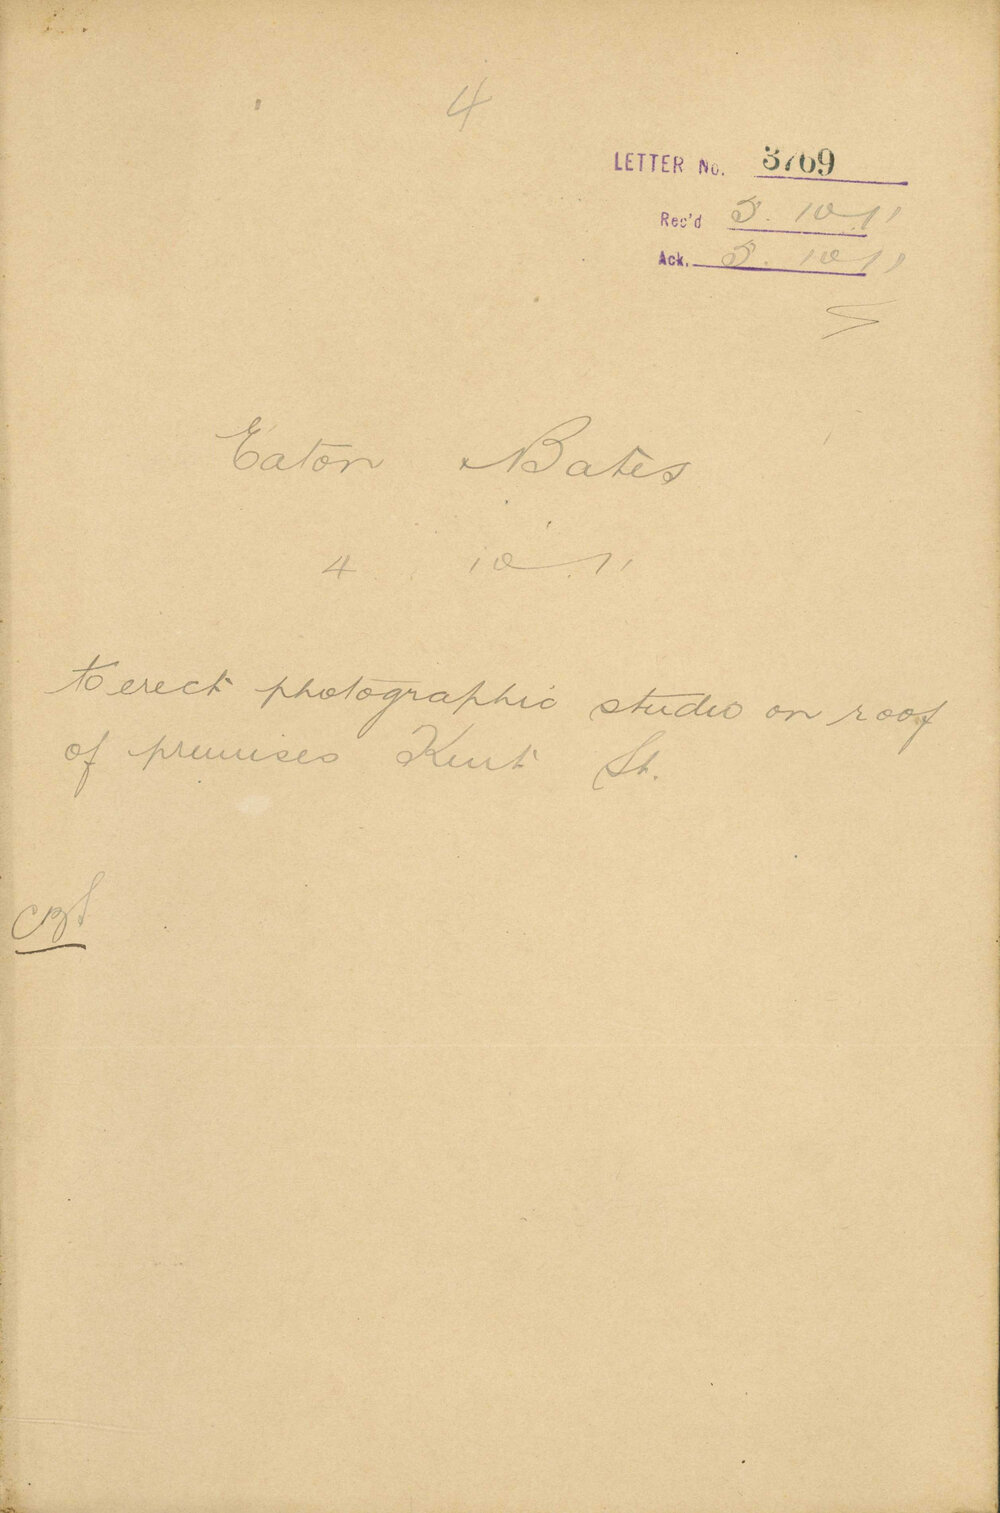 4
LETTER No. 3769
Rec'd 5.10.11
Ack. 5.10.11
Eaton Bates
4.10.11
to erect photographic studio on roof
of premises Kent St.